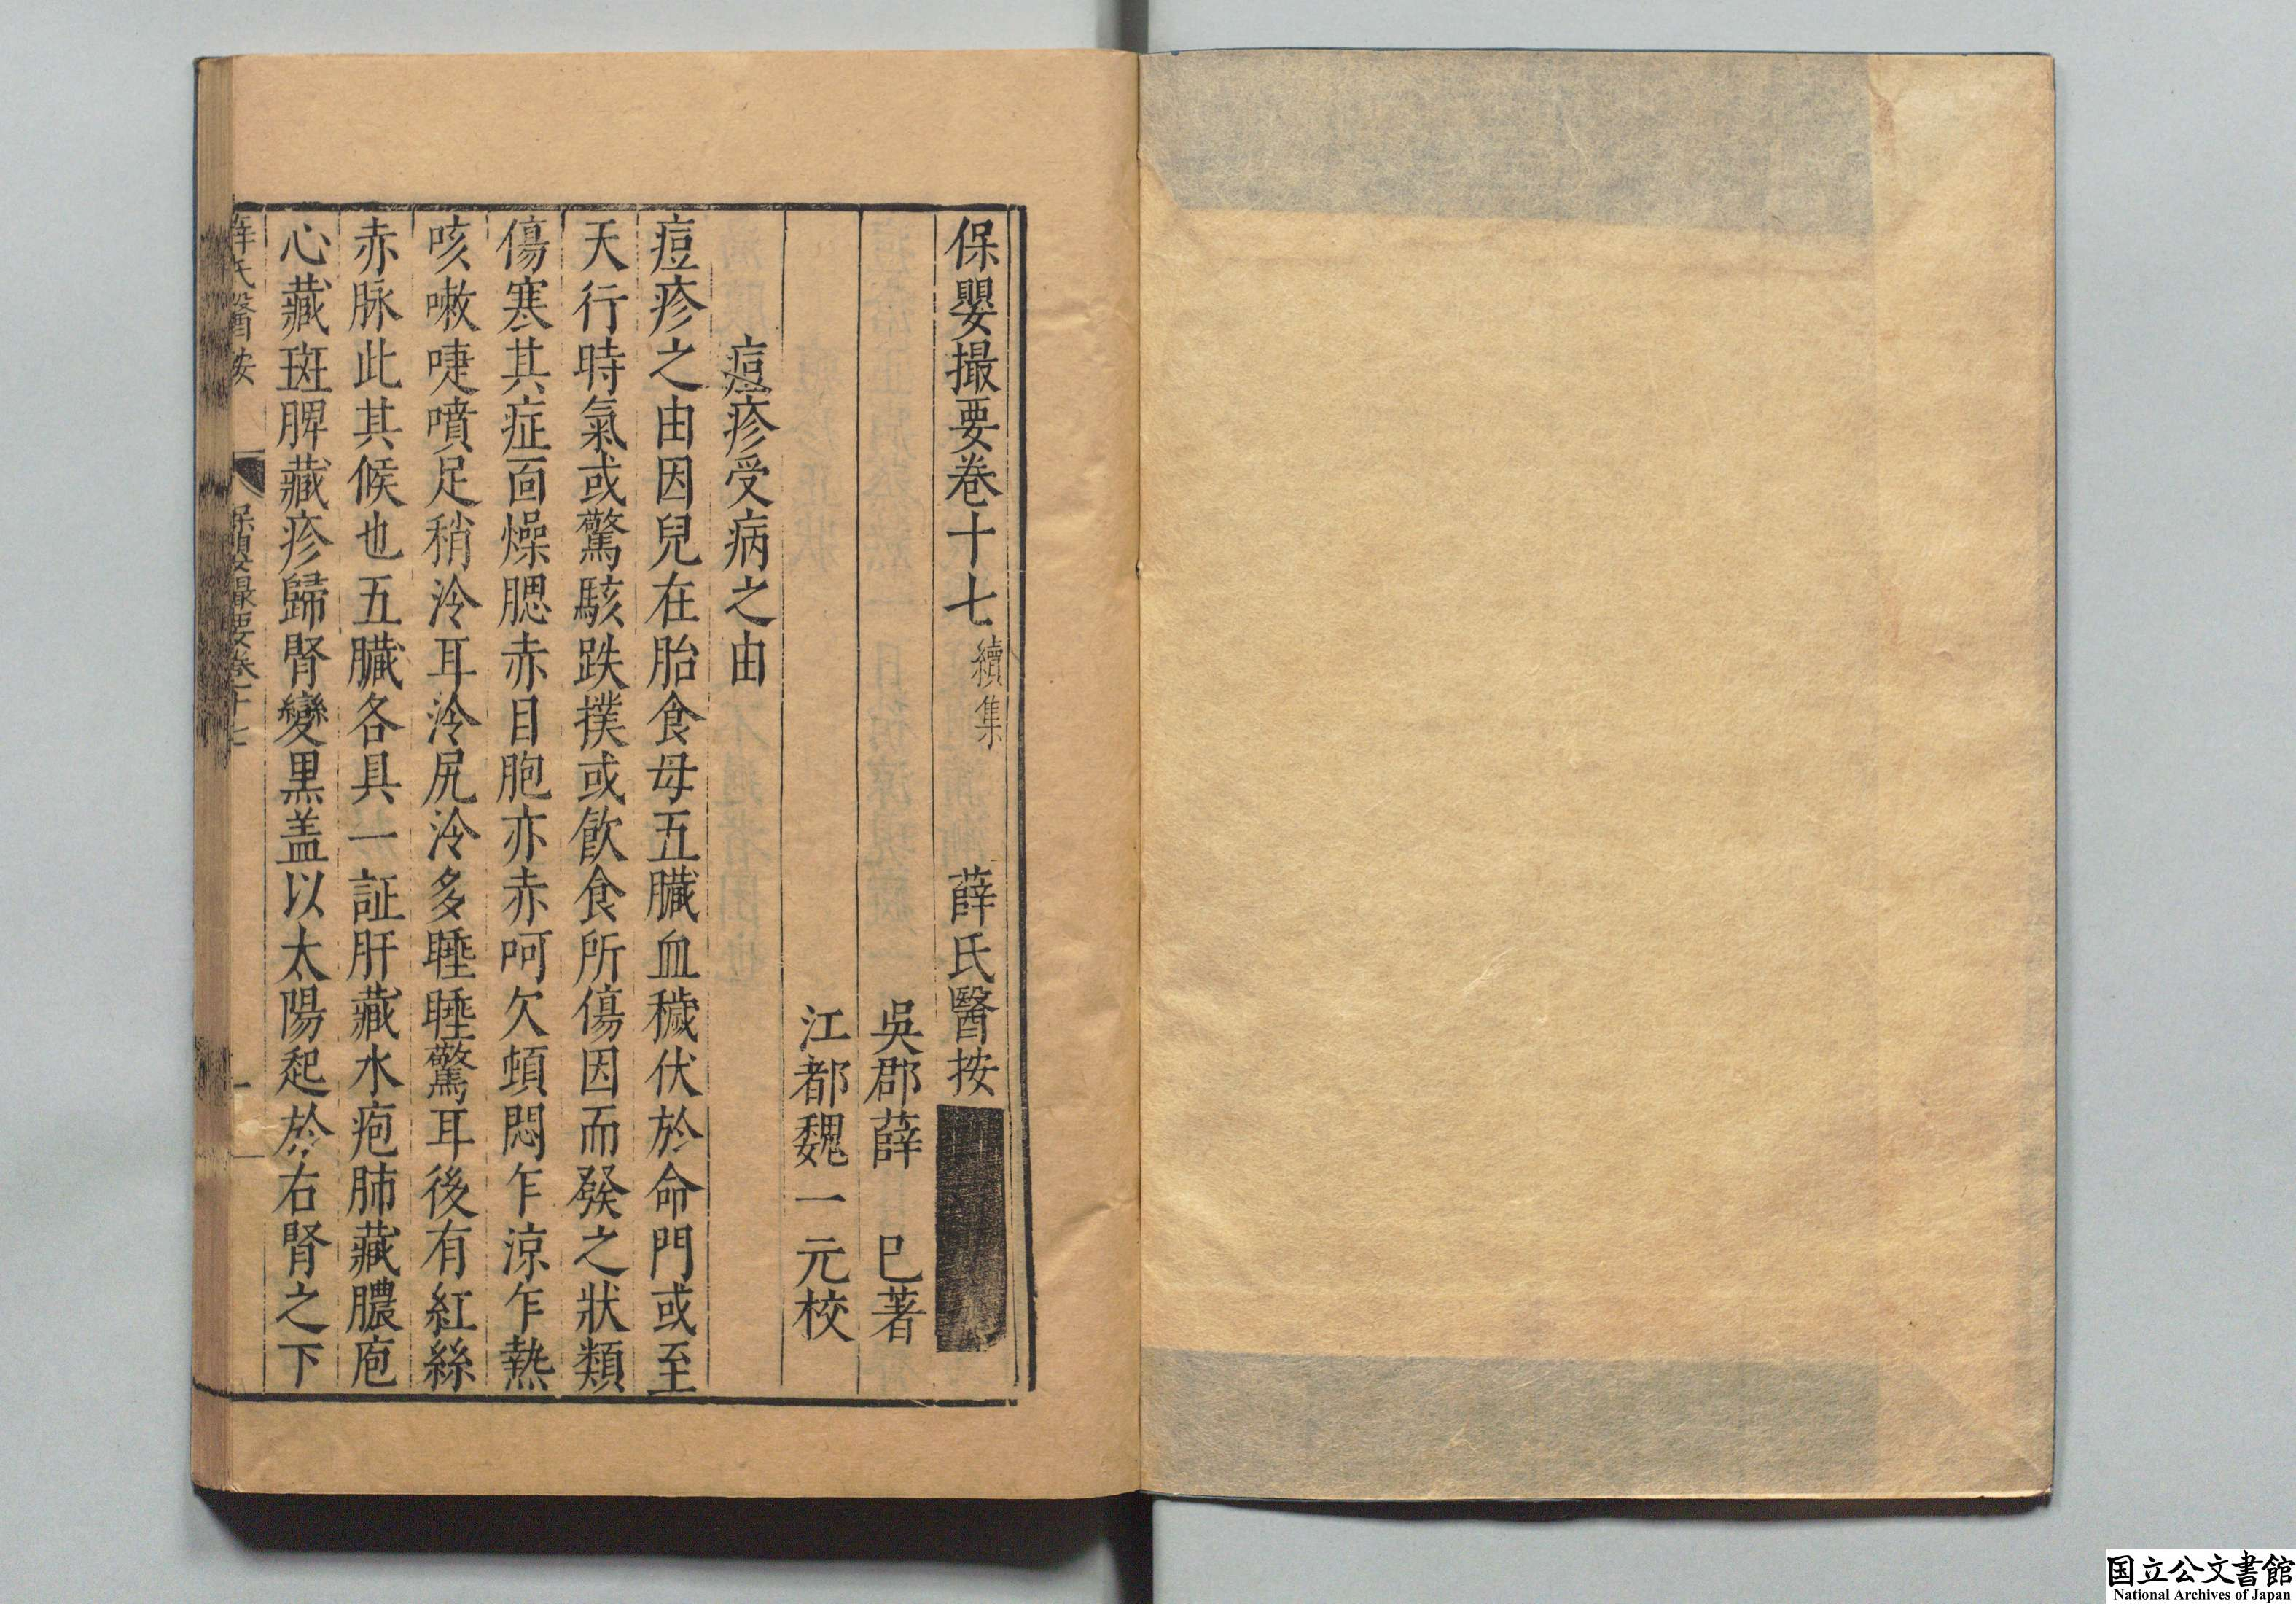 保嬰撮要卷十七 續集 薛氏醫按
吳郡薛 巳著
江都魏一元校
痘疹受病之由
痘疹之由因兒在胎食母五臟血穢伏於命門或至
天行時氣或驚駭跌撲或飲食所傷因而發之狀類
傷寒其症面燥腮赤目胞亦赤呵欠頓悶乍涼乍熱
咳嗽嚏噴足稍冷耳冷尻冷多睡睡驚耳後有紅絲
赤脉此其候也五臟各具一証肝藏水疱肺藏膿疱
心藏斑脾藏疹歸腎變黑盖以太陽起於右腎之下
薛氏醫按 保嬰撮要卷十七 一
国立公文書館
National Archives of Japan